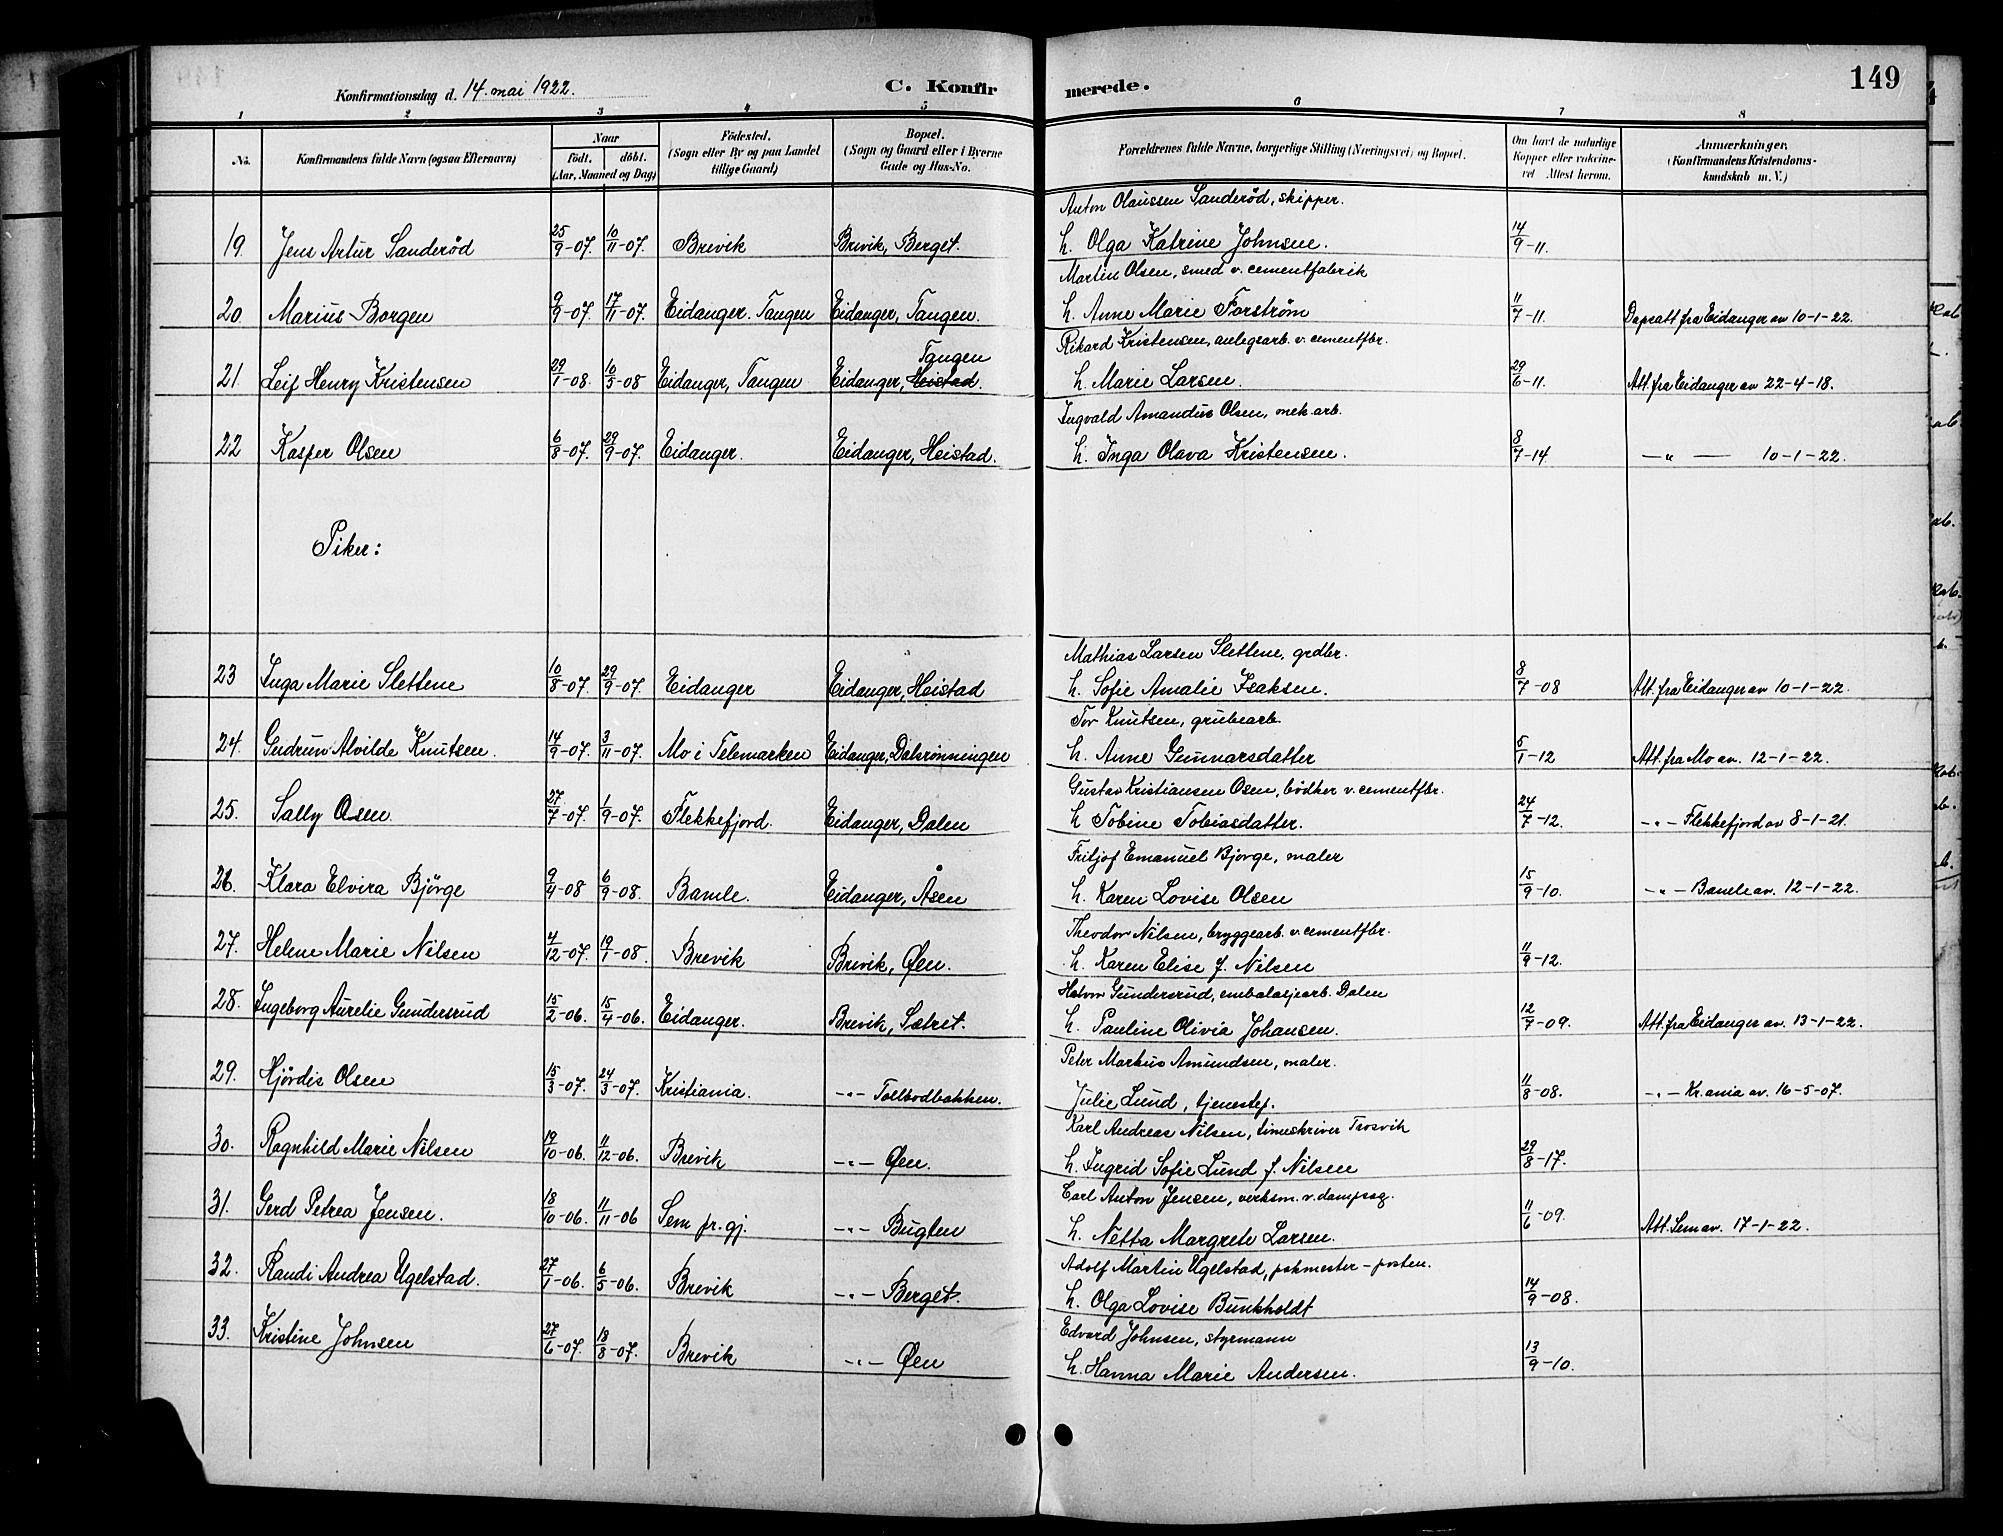 Konfirmationsdag d. 14. mai 1922.
C. Konfirmerede.
149
1 2 3 4 5 6 7 8
No. | Konfirmandens fulde Navn (ogsaa Efternavn) | Naar födt. döbt. (Aar, Maaned og Dag) | Födested. (Sogn eller By og paa Landet tillige Gaard) | Bopæl. (Sogn og Gaard eller i Byerne Gade og Hus-No. | Forældrenes fulde Navne, borgerlige Stilling (Næringsvei) og Bopæl. | Om havt de naturlige Kopper eller vakcineret Attest herom. | Anmærkninger. (Konfirmandens Kristendomskundskab m. V.)
Anton Olaussen Sanderød, skipper.
19. Jens Artur Sanderød 25/9-07. 10/11-07. Brevik Brevik, Berget. h. Olga Katrine Johnsen. 14/9-11.
Martin Olsen, smed v. cementfabrik
20. Marius Borgen 9/9-07. 17/11-07. Eidanger. Tangen Eidanger, Tangen. h. Anne Marie Forstrøm 11/7-11. Dapsatt fra Eidanger av 10-1-22.
Rikard Kristensen, anlegsarb. v. cementfbr.
Tangen
21. Leif Henry Kristensen 29/1-08. 10/5-08 Eidanger, Tangen Eidanger, Heistad. h. Marie Larsen. 29/6-11. Att. fra Eidanger av 22-4-18.
Ingvald Amandus Olsen, mek. arb.
22 Kasper Olsen 6/8-07. 29/9-07. Eidanger. Eidanger, Heistad. h. Inga Olava Kristensen. 8/7-14. —"— 10-1-22.
Piker:
Mathias Larsen Slettene, grdbr.
23 Inga Marie Slettene 10/8-07. 29/9-07. Eidanger Eidanger, Heistad h. Sofie Amalie Isaksen. 8/7-08 Att. fra Eidanger av 10-1-22.
Tor Knutsen, grubearb.
24. Gudrun Alvilde Knutsen. 14/9-07. 3/11-07. Mo i Telemarken Eidanger, Dalsrønningen h. Anne Gunnarsdatter 5/1-12 Att. fra Mo av. 12-1-22.
Gustav Kristiansen Osen, bødker v. cementfbr.
25. Sally Osen 27/7-07. 1/9-07. Flekkefjord. Eidanger, Dalen h Tobine Tobiasdatter. 24/7-12. -"- Flekkefjord av 8-1-21.
Fritjof Emanuel Bjørge, maler
26. Klara Elvira Bjørge 9/4-08 6/9-08. Bamle. Eidanger, Åsen h. Karen Lovise Olsen 15/9-10. -"- Bamle av. 12-1-22.
Theodor Nilsen, bryggearb. v. cementfbr.
27. Helene Marie Nilsen 4/12-07. 19/1-08. Brevik Brevik, Øen. h. Karen Elise f. Nilsen 11/9-12.
Halvor Gundersrud, embalasjearb. Dalen
28. Ingeborg Aurelie Gundersrud 15/2-06. 15/4-06. Eidanger. Brevik, Sætret. h. Pauline Olivia Johansen. 12/7-09. Att. fra Eidanger av. 13-1-22.
Peter Markus Amundsen, maler.
29. Hjørdis Olsen 15/3-07. 24/3-07. Kristiania. -"- Tolbodbakken. Julie Lund, tjenestep. 11/8-08. -"- Kr.ania av. 16-5-07.
Karl Andreas Nilsen, timeskriver Trosvik
30. Ragnhild Marie Nilsen 19/10-06. 11/12-06. Brevik -"- Øen. h. Ingrid Sofie Lund f. Nilsen 29/8-17.
Carl Anton Jensen, verksm. v. dampsag.
31. Gerd Petrea Jensen. 18/10-06. 11/11-06 Sem pr.gj. -"- Bugten h. Netta Margrete Larsen. 11/6-09. Att. Sem av. 17-1-22.
Adolf Martin Ugelstad, pakmester - posten.
32. Randi Andrea Ugelstad. 27/1-06. 6/5-06. Brevik -"- Berget. h. Olga Lovise Bunkholdt 14/9-08.
Edvard Johnsen, styrmann
33. Kristine Johnsen 27/6-07. 18/8-07. Brevik -"- Øen h. Hanna Marie Andersen. 13/9-10.